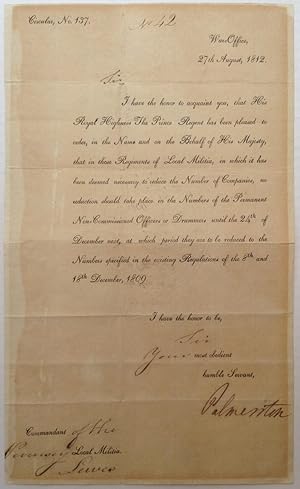 Circular, No. 137.
No 42
War-Office,
27th August, 1812.
Sir,
I have the honor to acquaint you, that His
Royal Highness The Prince Regent has been pleased to
order, in the Name and on the Behalf of His Majesty,
that in those Regiments of Local Militia, in which it has
been deemed necessary to reduce the Number of Companies, no
reduction should take place in the Numbers of the Permanent
Non-Commissioned Officers or Drummers until the 24th of
December next, at which period they are to be reduced to the
Numbers specified in the existing Regulations of the 8th and
18th December, 1809.
I have the honor to be,
Sir
Your most obedient
humble Servant,
Palmerston
Commandant of the
Pevensey Local Militia.
Lewes